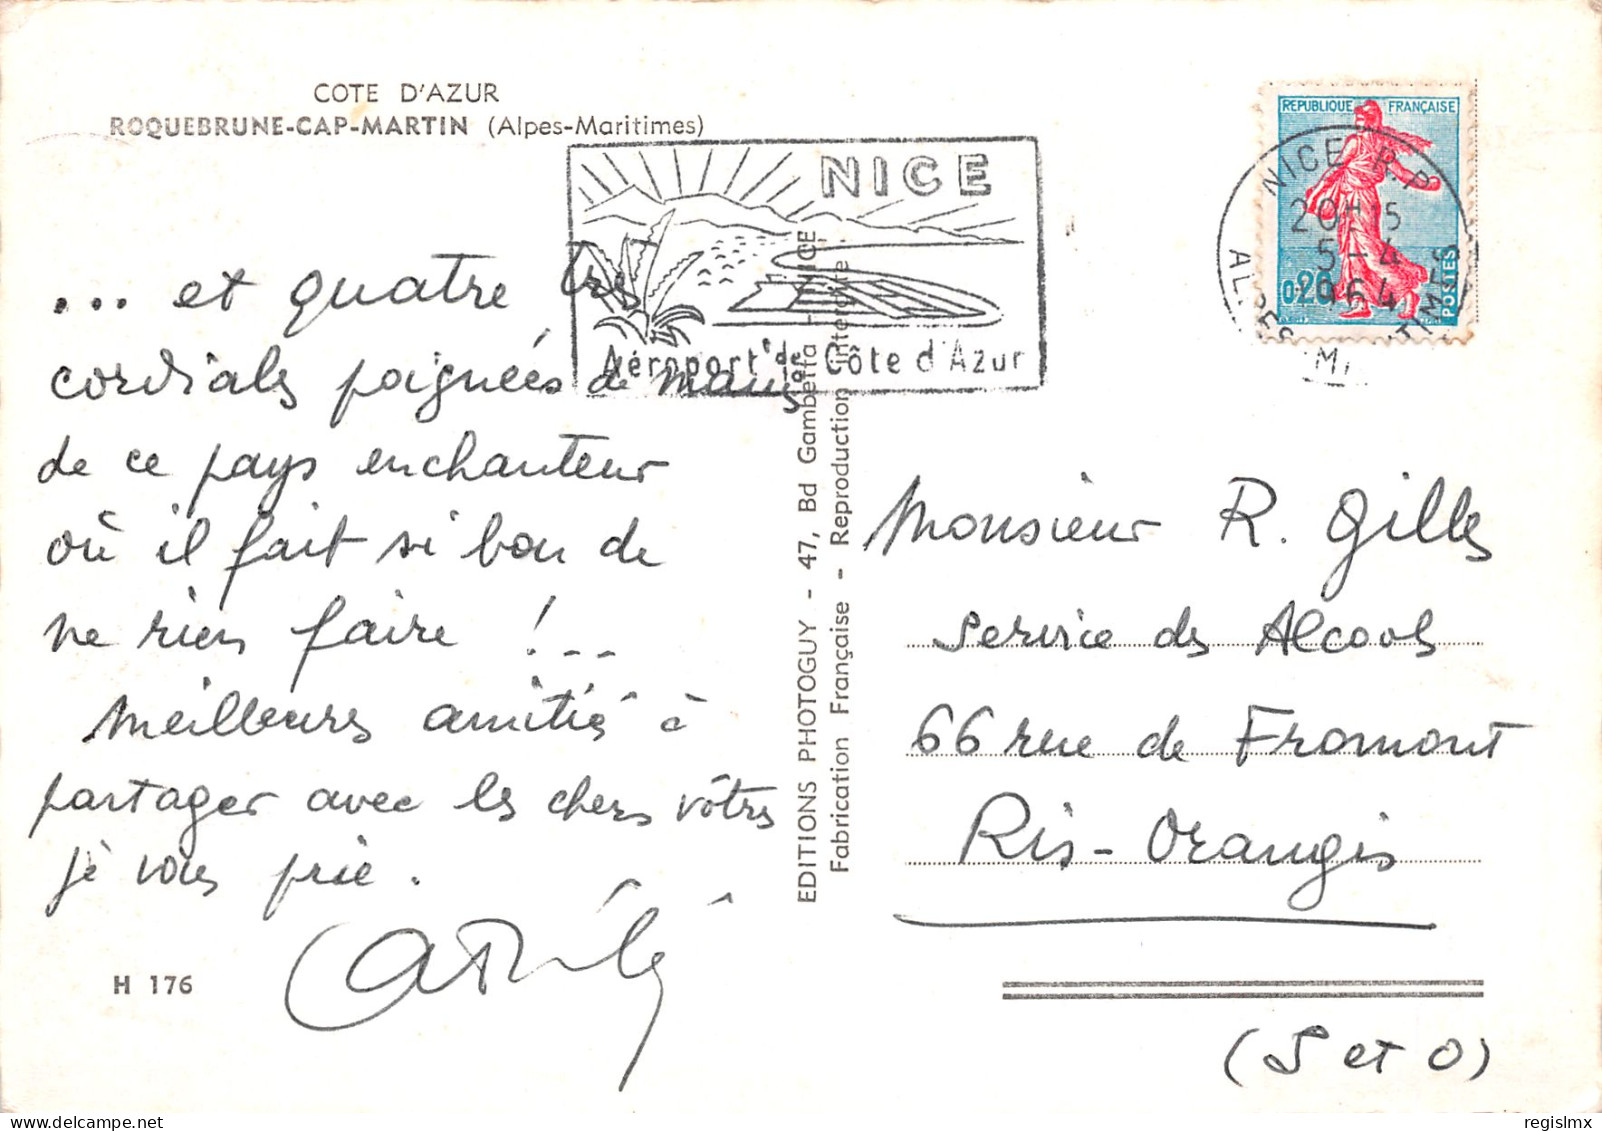 COTE D'AZUR
ROQUEBRUNE-CAP-MARTIN (Alpes-Maritimes)
NICE
Aéroport de Côte d'Azur
REPUBLIQUE FRANÇAISE
0,20
POSTES
NICE R.P.
20H15
5-4
1964
ALPES MARITIMES
... et quatre très
cordials poignées de mains
de ce pays enchanteur
où il fait si bon de
ne rien faire !...
Meilleurs amitiés à
partager avec les chers vôtres
je vous prie.
H 176
EDITIONS PHOTOGUY - 47, Bd Gambetta NICE
Fabrication Française - Reproduction interdite
Monsieur R. Gilles
Service des Alcools
66 rue de Fromont
Ris-Orangis
(S et O)
regislmx
www.delcampe.net